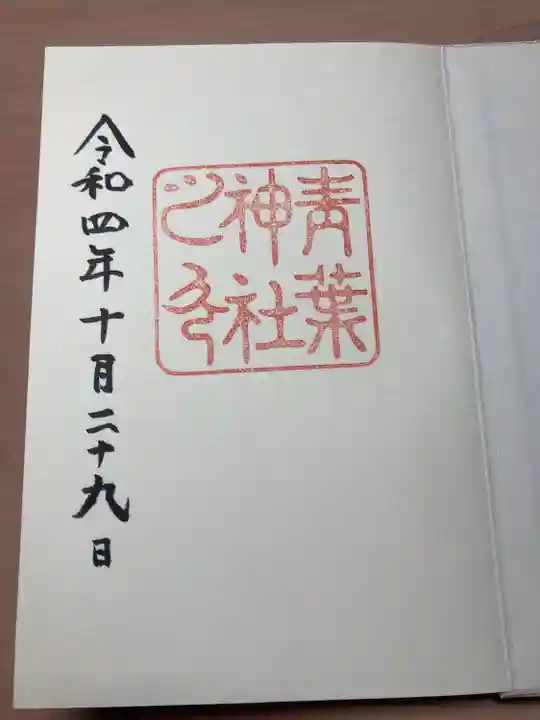 青葉
神社
令和四年十月二十九日